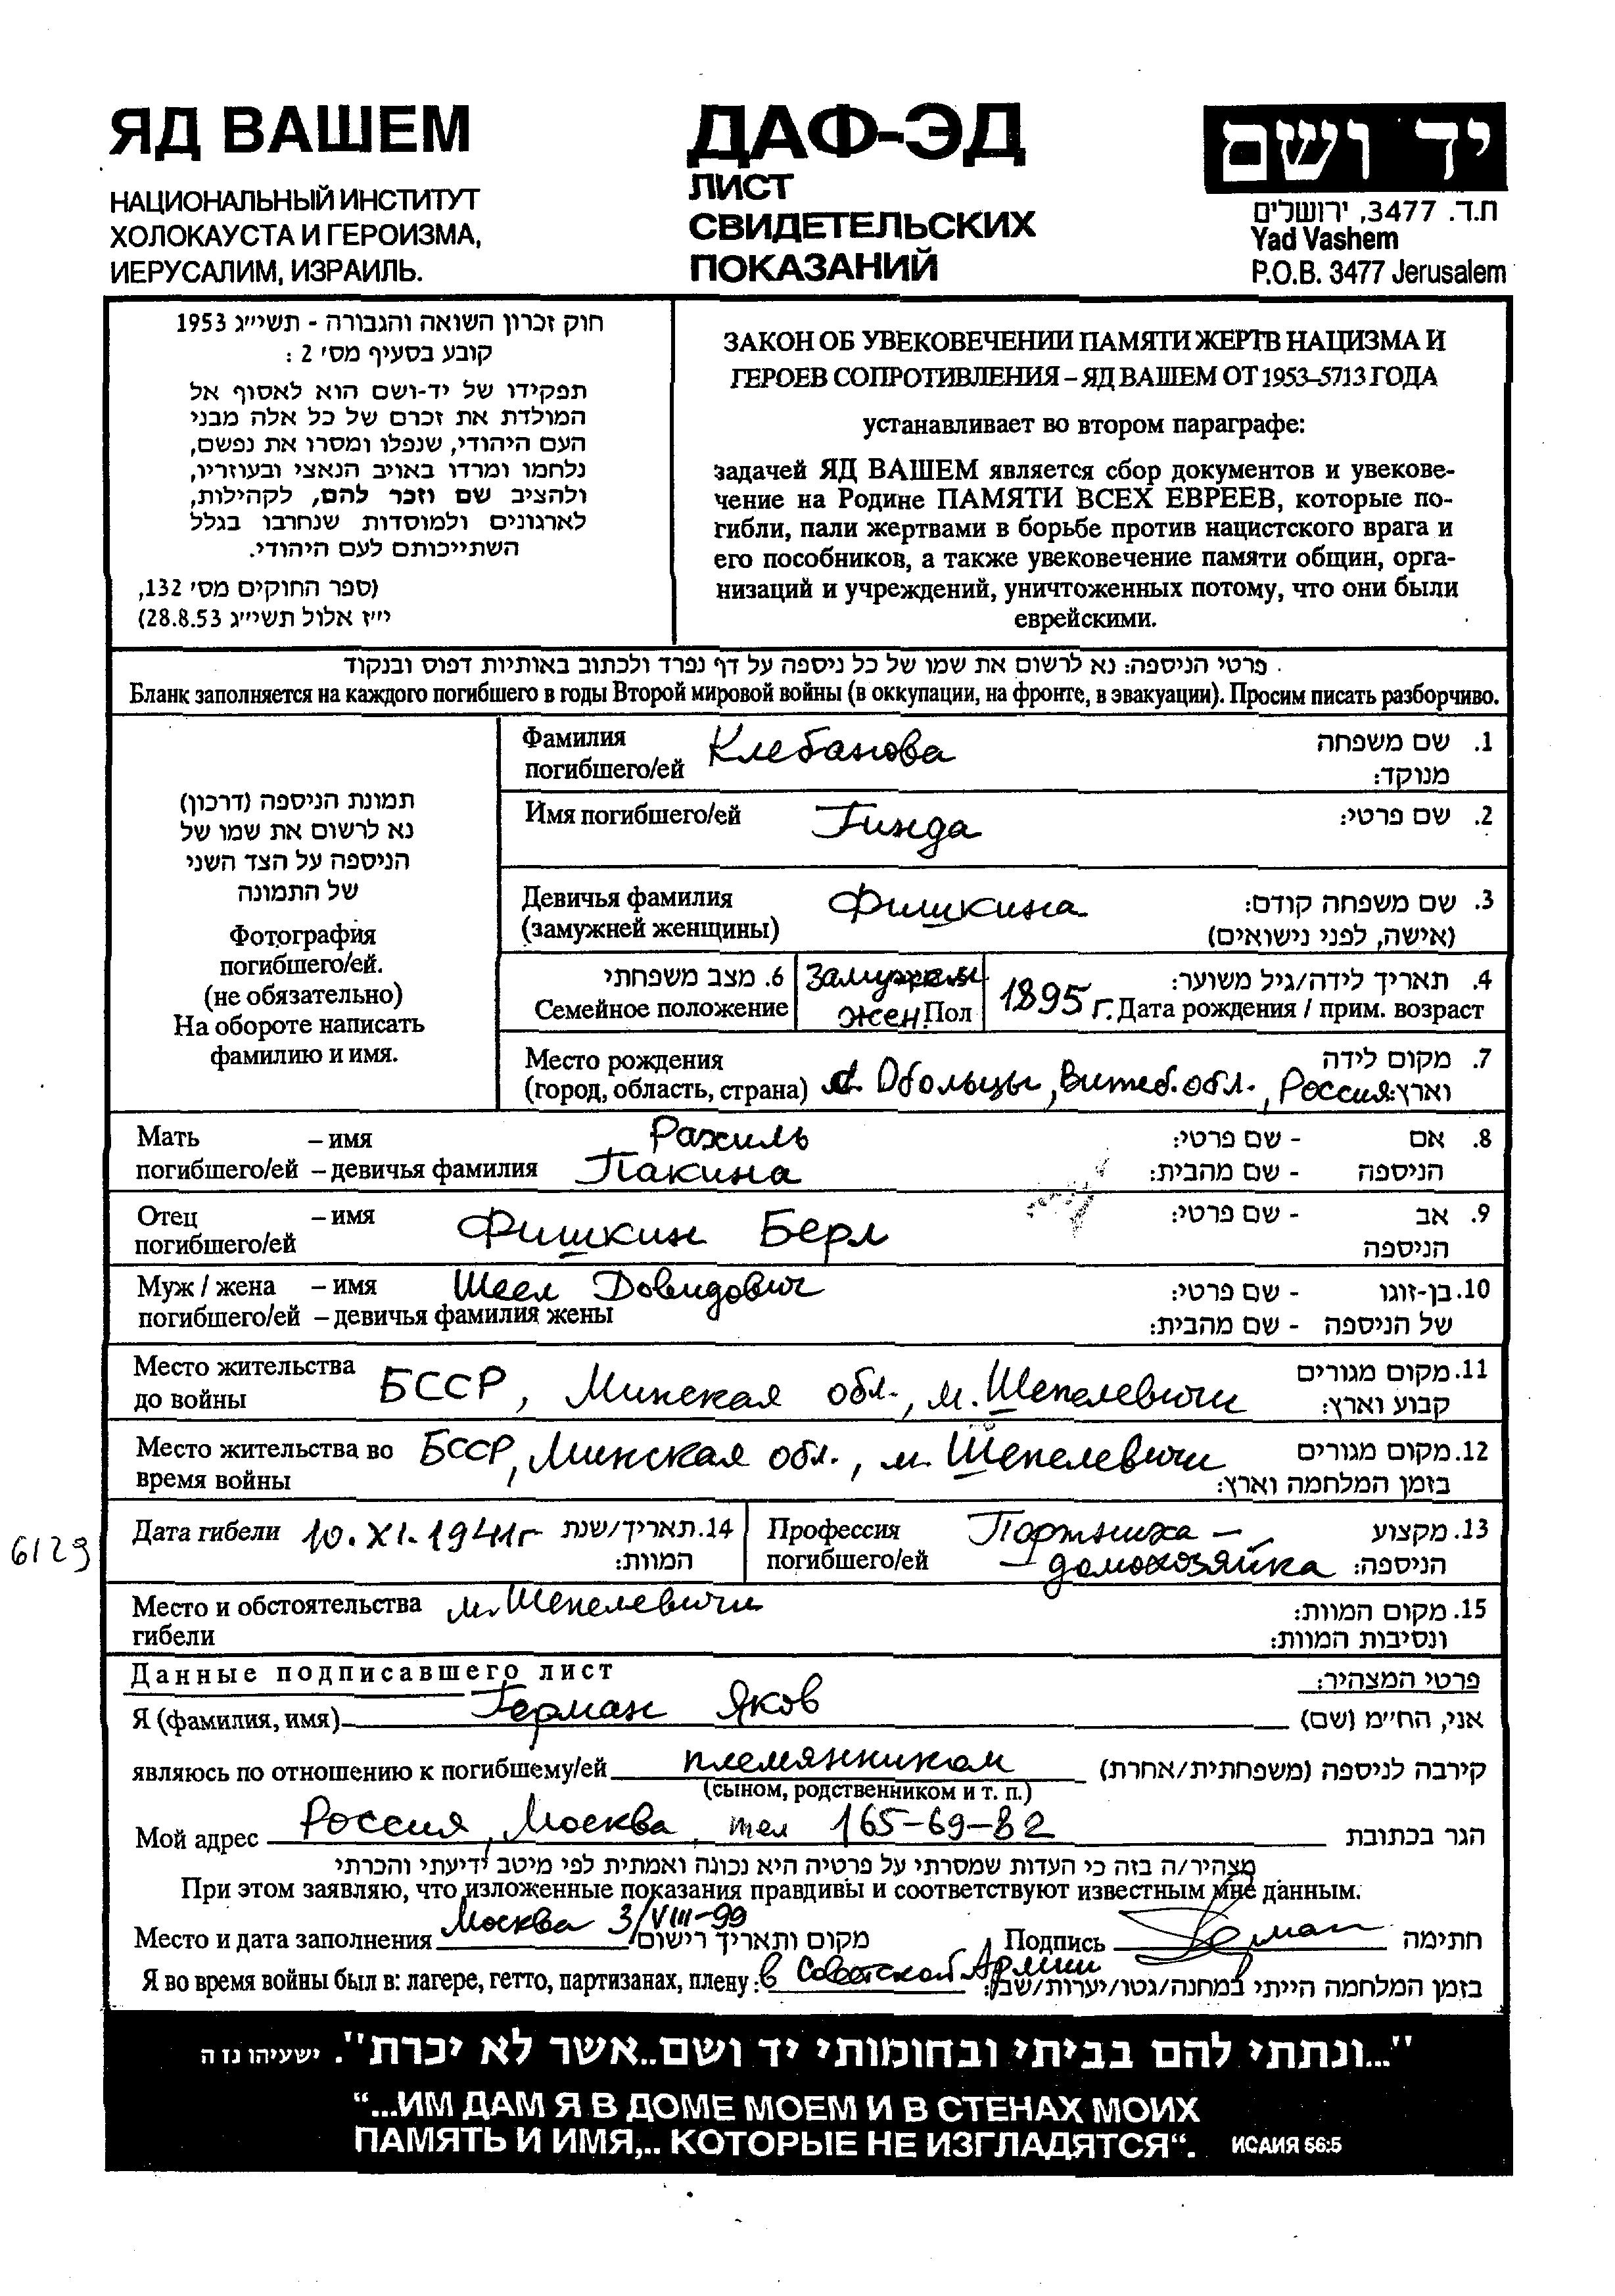 ЯД ВАШЕМ
НАЦИОНАЛЬНЫЙ ИНСТИТУТ
ХОЛОКАУСТА И ГЕРОИЗМА,
ИЕРУСАЛИМ, ИЗРАИЛЬ.
ДАФ-ЭД
ЛИСТ
СВИДЕТЕЛЬСКИХ
ПОКАЗАНИЙ
יד ושם
ת.ד. 3477, ירושלים
Yad Vashem
P.O.B. 3477 Jerusalem
חוק זכרון השואה והגבורה - תשי״ג 1953
קובע בסעיף מס׳ 2 :
תפקידו של יד-ושם הוא לאסוף אל
המולדת את זכרם של כל אלה מבני
העם היהודי, שנפלו ומסרו את נפשם,
נלחמו ומרדו באויב הנאצי ובעוזריו,
ולהציב שם וזכר להם, לקהילות,
לארגונים ולמוסדות שנחרבו בגלל
השתייכותם לעם היהודי.
(ספר החוקים מס׳ 132,
י״ז אלול תשי״ג 28.8.53)
ЗАКОН ОБ УВЕКОВЕЧЕНИИ ПАМЯТИ ЖЕРТВ НАЦИЗМА И
ГЕРОЕВ СОПРОТИВЛЕНИЯ – ЯД ВАШЕМ ОТ 1953–5713 ГОДА
устанавливает во втором параграфе:
задачей ЯД ВАШЕМ является сбор документов и увекове-
чение на Родине ПАМЯТИ ВСЕХ ЕВРЕЕВ, которые по-
гибли, пали жертвами в борьбе против нацистского врага и
его пособников, а также увековечение памяти общин, орга-
низаций и учреждений, уничтоженных потому, что они были
еврейскими.
פרטי הניספה: נא לרשום את שמו של כל ניספה על דף נפרד ולכתוב באותיות דפוס ובנקוד
Бланк заполняется на каждого погибшего в годы Второй мировой войны (в оккупации, на фронте, в эвакуации). Просим писать разборчиво.
תמונת הניספה (דרכון)
נא לרשום את שמו של
הניספה על הצד השני
של התמונה
Фотография
погибшего/ей.
(не обязательно)
На обороте написать
фамилию и имя.
Фамилия Клебанова 1. שם משפחה
погибшего/ей מנוקד:
Имя погибшего/ей Гинда 2. שם פרטי:
Девичья фамилия Фишкина 3. שם משפחה קודם:
(замужней женщины) (אישה, לפני נישואים)
6. מצב משפחתי Замужем 4. תאריך לידה/גיל משוער:
Семейное положение жен. Пол 1895 г. Дата рождения / прим. возраст
Место рождения 7. מקום לידה
(город, область, страна) Обольцы, Витеб. обл., Россия וארץ:
Мать – имя Рахиль 8. אם - שם פרטי:
погибшего/ей – девичья фамилия Пакина הניספה - שם מהבית:
Отец – имя Фишкин Берл 9. אב - שם פרטי:
погибшего/ей הניספה
Муж / жена – имя Шеел Довидович 10. בן-זוגו - שם פרטי:
погибшего/ей – девичья фамилия жены של הניספה - שם מהבית:
Место жительства БССР, Минская обл., м. Шепелевичи 11. מקום מגורים
до войны קבוע וארץ:
Место жительства во БССР, Минская обл., м. Шепелевичи 12. מקום מגורים
время войны בזמן המלחמה וארץ:
6129
Дата гибели 10.XI.1941г 14. תאריך/שנת Профессия Портниха – 13. מקצוע
המוות: погибшего/ей – домохозяйка הניספה:
Место и обстоятельства м. Шепелевичи 15. מקום המוות:
гибели ונסיבות המוות:
Данные подписавшего лист פרטי המצהיר:
Я (фамилия, имя) Герман Яков אני, הח״מ (שם)
являюсь по отношению к погибшему/ей племянником קירבה לניספה (משפחתית/אחרת)
(сыном, родственником и т. п.)
Мой адрес Россия, Москва, тел 165-69-82 הגר בכתובת
מצהיר/ה בזה כי העדות שמסרתי על פרטיה היא נכונה ואמתית לפי מיטב ידיעתי והכרתי
При этом заявляю, что изложенные показания правдивы и соответствуют известным мне данным.
Место и дата заполнения Москва 3/VIII-99 מקום ותאריך רישום Подпись Герман חתימה
Я во время войны был в: лагере, гетто, партизанах, плену: в Советской Армии בזמן המלחמה הייתי במחנה/גטו/יערות/שבי:
"...ונתתי להם בביתי ובחומותי יד ושם..אשר לא יכרת". ישעיהו נז ה
“...ИМ ДАМ Я В ДОМЕ МОЕМ И В СТЕНАХ МОИХ
ПАМЯТЬ И ИМЯ,.. КОТОРЫЕ НЕ ИЗГЛАДЯТСЯ“. ИСАИЯ 56:5